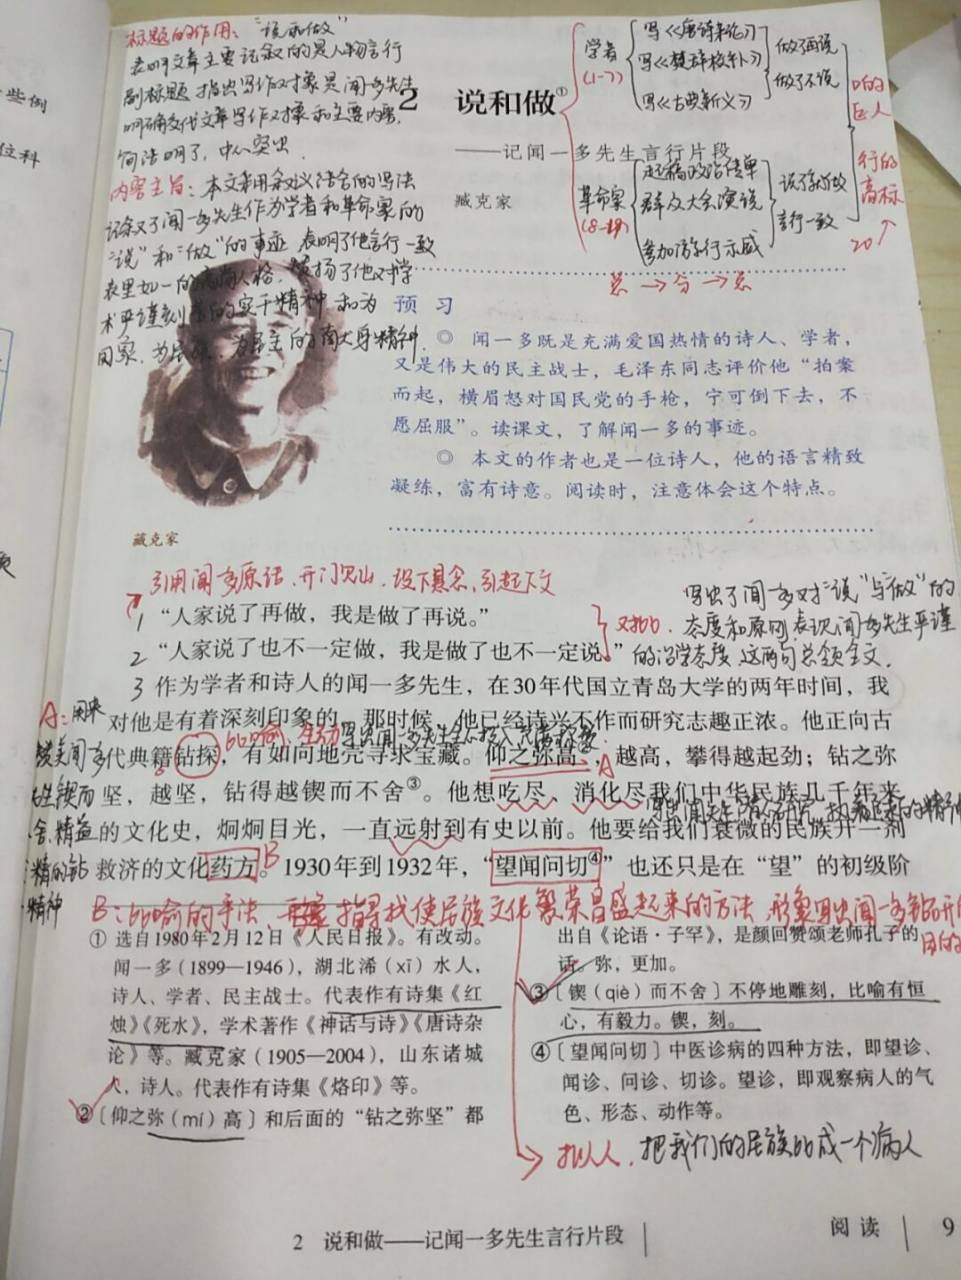 标题的作用："说和做"
表明文章主要记叙的是人物言行
副标题指出写作对象是闻一多先生
明确交代文章写作对象和主要内容，
简洁明了，中心突出
内容主旨：本文采用叙议结合的写法
记叙了闻一多先生作为学者和革命家的
"说"和"做"的事迹 表明了他言行一致
表里如一的高尚人格.颂扬了他对学
术严谨刻苦的实干精神和为
国家.为民族.为民主的伟大牺牲精神.
学者
(1-7)
写《唐诗杂论》
写《楚辞校补》
写《古典新义》
做了再说
做了不说
口的
巨人
革命家
起稿政治传单
群众大会演说
参加游行示威
说了就做
言行一致
行的
高标
20
总→分→总
些例
位科
2 说和做①
——记闻一多先生言行片段
臧克家
预 习
◎ 闻一多既是充满爱国热情的诗人、学者，
又是伟大的民主战士，毛泽东同志评价他“拍案
而起，横眉怒对国民党的手枪，宁可倒下去，不
愿屈服”。读课文，了解闻一多的事迹。
◎ 本文的作者也是一位诗人，他的语言精致
凝练，富有诗意。阅读时，注意体会这个特点。
臧克家
引用闻一多原话、开门见山、设下悬念、引起下文
1 “人家说了再做，我是做了再说。”
2 “人家说了也不一定做，我是做了也不一定说。”
对比.
写出了闻一多对"说"与"做"的
态度和原则 表现闻一多先生严谨
的治学态度 这两句总领全文.
3 作为学者和诗人的闻一多先生，在30年代国立青岛大学的两年时间，我
对他是有着深刻印象的。那时候，他已经诗兴不作而研究志趣正浓。他正向古
代典籍钻探，有如向地壳寻求宝藏。仰之弥高，越高，攀得越起劲；钻之弥
坚，越坚，钻得越锲而不舍③。他想吃尽、消化尽我们中华民族几千年来
的文化史，炯炯目光，一直远射到有史以前。他要给我们衰微的民族开一剂
救济的文化药方。1930年到1932年，“望闻问切④”也还只是在“望”的初级阶
A：用来
赞美闻多
先生锲而
舍.精益
精的钻
精神
A
B
B：比喻的手法
指寻找使民族文化繁荣昌盛起来的方法
① 选自1980年2月12日《人民日报》。有改动。
闻一多（1899—1946），湖北浠（xī）水人，
诗人、学者、民主战士。代表作有诗集《红
烛》《死水》，学术著作《神话与诗》《唐诗杂
论》等。臧克家（1905—2004），山东诸城
人，诗人。代表作有诗集《烙印》等。
②〔仰之弥（mí）高〕和后面的“钻之弥坚”都
出自《论语·子罕》，是颜回赞颂老师孔子的
话。弥，更加。
③〔锲（qiè）而不舍〕不停地雕刻，比喻有恒
心，有毅力。锲，刻。
④〔望闻问切〕中医诊病的四种方法，即望诊、
闻诊、问诊、切诊。望诊，即观察病人的气
色、形态、动作等。
拟人.把我们的民族比成一个病人
2 说和做——记闻一多先生言行片段
阅读 9